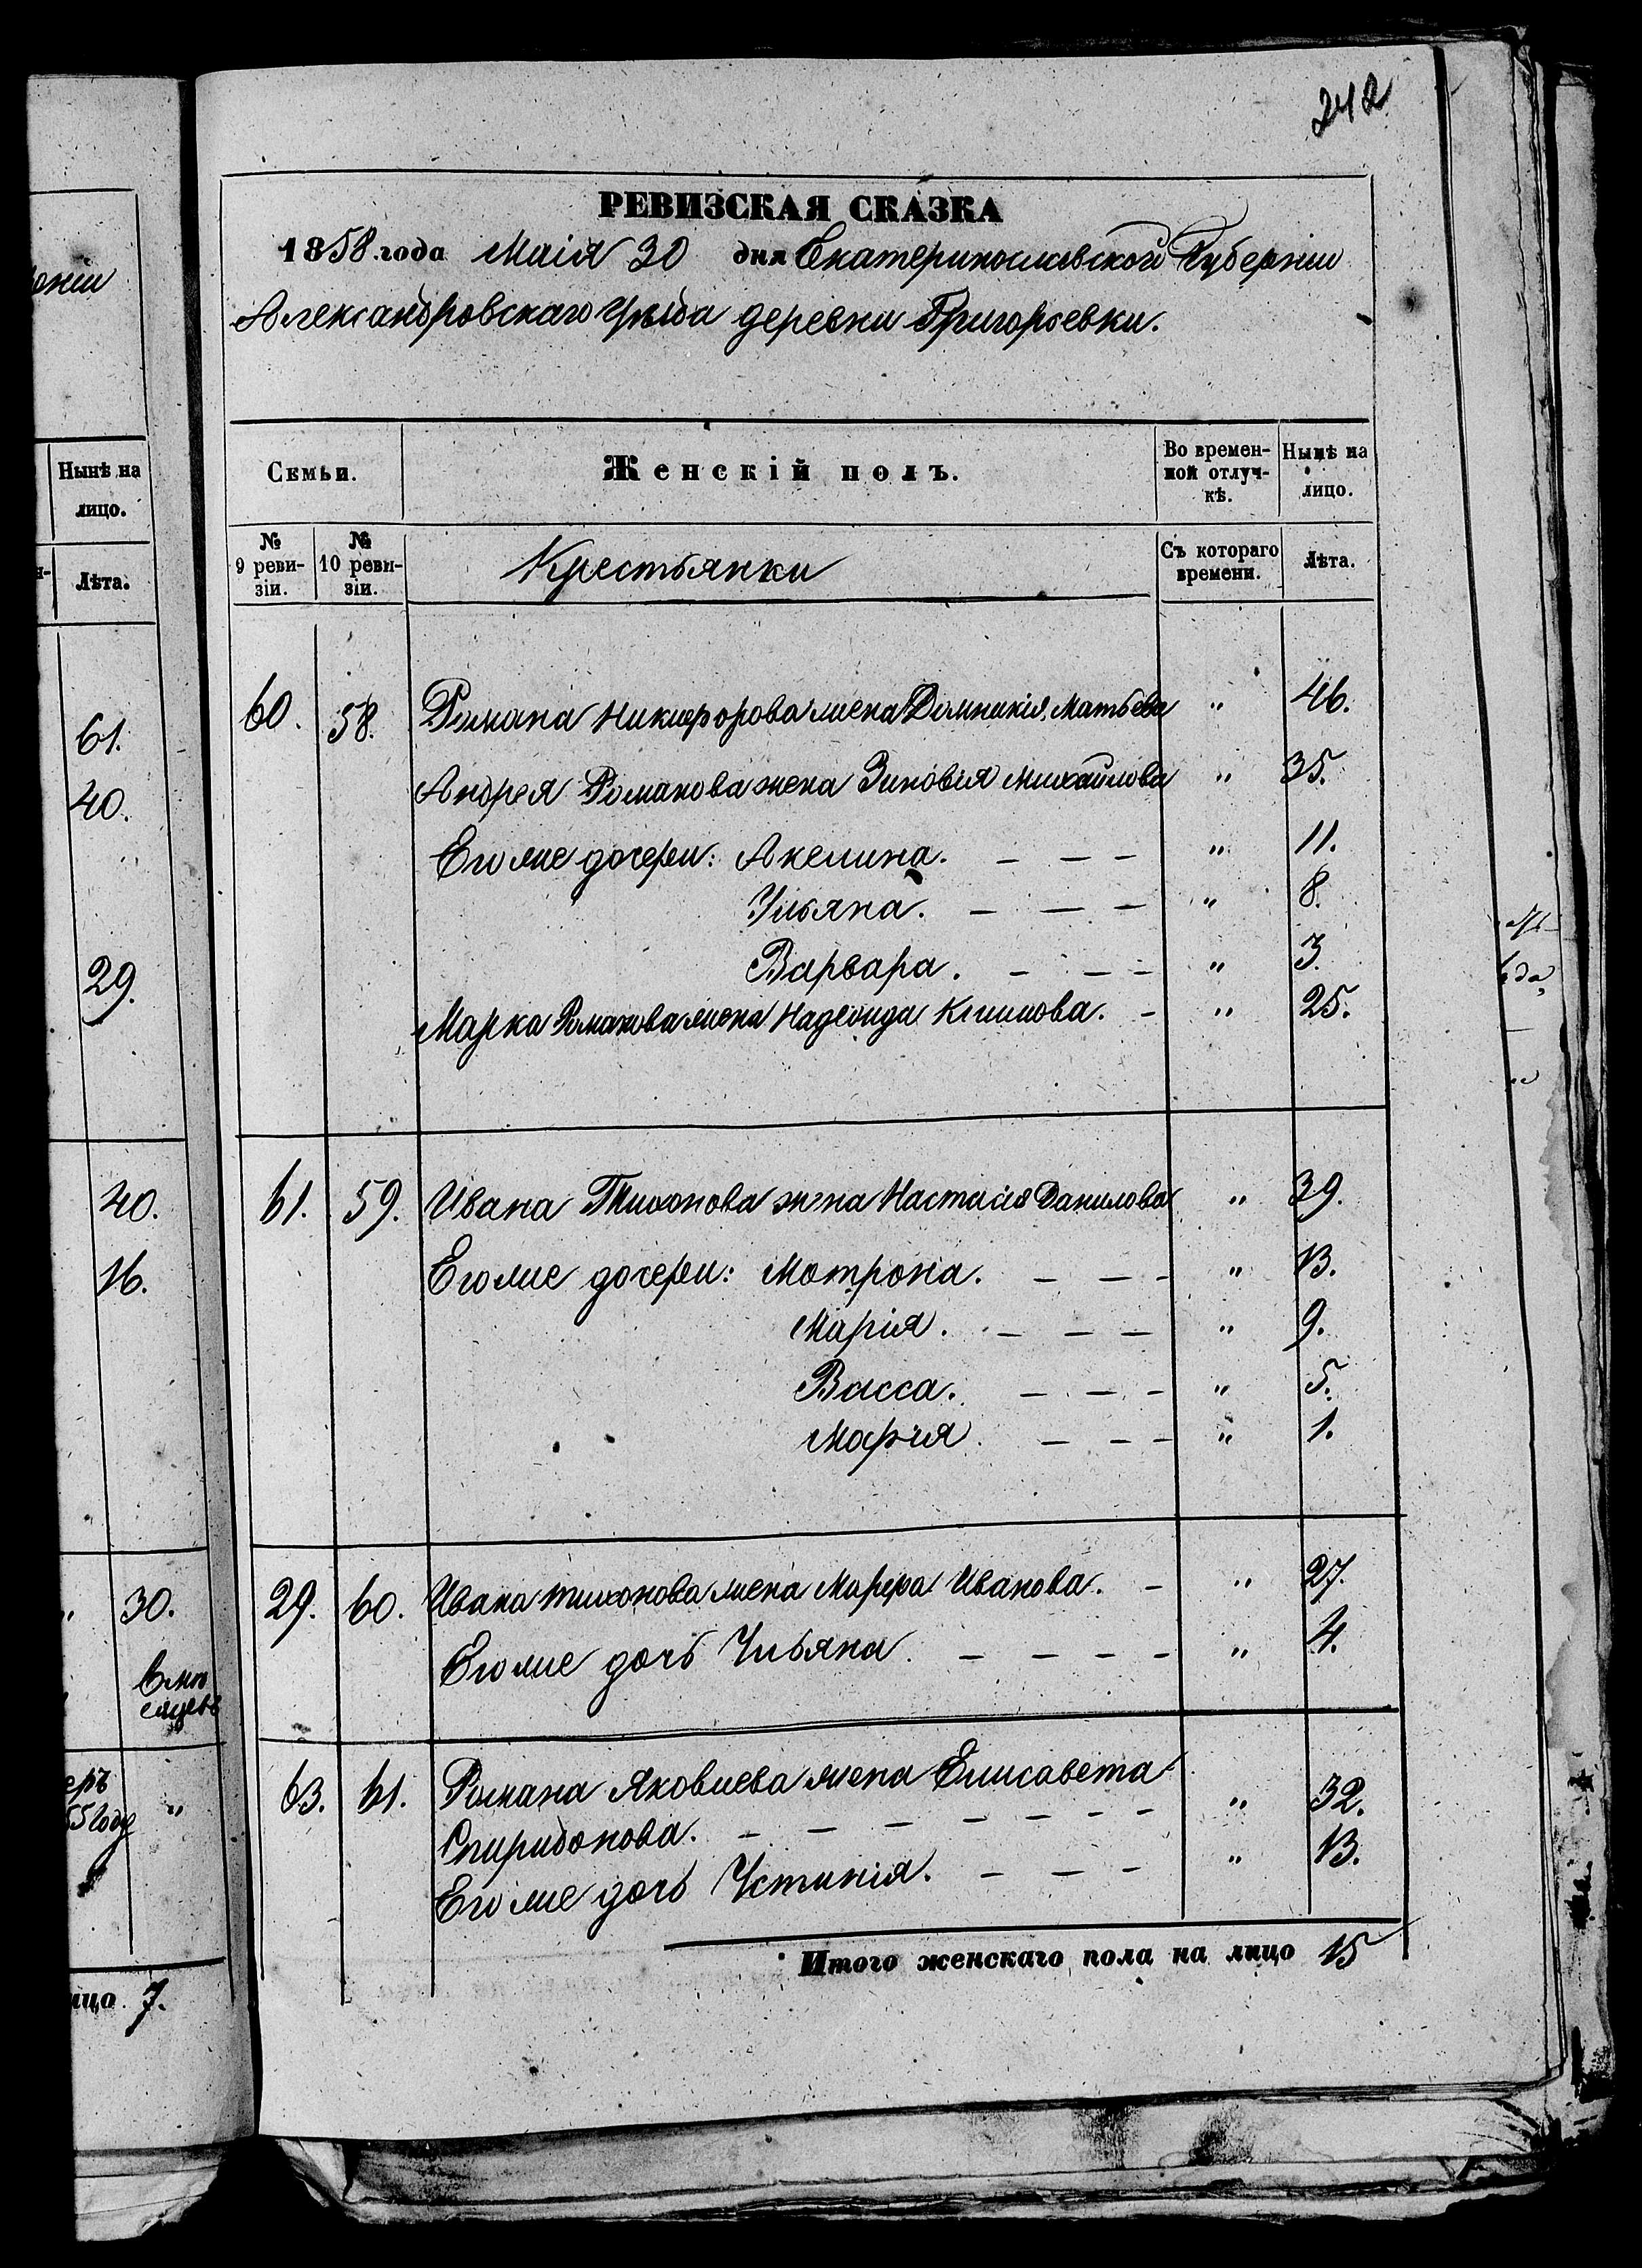 242
РЕВИЗСКАЯ СКАЗКА
1858 года Маія 30 дня Екатеринославской Губерніи
Александровскаго Уѣзда деревни Григорьевки.
Семьи.
Женскій полъ.
Во времен-
ной отлуч-
кѣ.
Нынѣ на
лицо.
№
9 реви-
зіи.
№
10 реви-
зіи.
Крестьянки
Съ котораго
времени.
Лѣта.
60. 58. Романа Никифорова жена Домникія Матвева " 46.
Андрея Романова жена Зиновія Михайлова " 35.
Его же дочери: Акелина. — — — " 11.
Ульяна. — — — " 8.
Варвара. — — — " 3.
Марка Романова жена Надежда Климова. — " 25.
61. 59. Ивана Тихонова жена Настасія Данилова " 39.
Его же дочери: Мотрона. — — — " 13.
Марія. — — — " 9.
Васса. — — — " 5.
Марія. — — — " 1.
29. 60. Ивана тихонова жена Марфа Иванова. — " 27.
Его же дочь Ульяна. — — — — " 4.
63. 61. Романа Яковлева жена Елисавета
Спиридонова. — — — — — — " 32.
Его же дочь Устинія. — — — " 13.
Итого женскаго пола на лицо 15
Нынѣ на
лицо.
Лѣта.
61.
40.
29.
40.
16.
" 30.
6 мѣ
сяцевъ
еръ
55 году "
ицо 7.